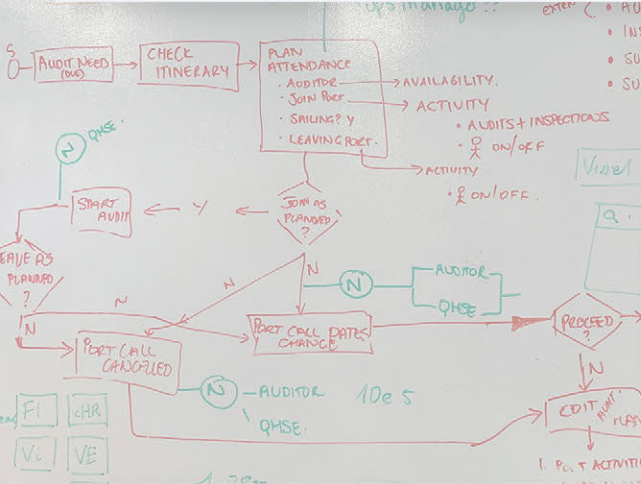 Ops Manager??
S
AUDIT NEED
(DUE)
CHECK
ITINERARY
PLAN
ATTENDANCE
• AUDITOR
• JOIN PORT
• SAILING? Y
• LEAVING PORT.
AVAILABILITY.
ACTIVITY
• AUDITS + INSPECTIONS
• ON/OFF
ACTIVITY
• ON/OFF.
• AU
• INS
• SU
• SU
N
QHSE.
START
AUDIT
Y
JOIN AS
PLANNED
?
EAVE AS
PLANNED
?
N
N
N
N
N
AUDITOR
QHSE
PORT CALL DATES
CHANGE
PROCEED
?
PORT CALL
CANCELLED
N
AUDITOR
QHSE.
10e5
N
EDIT
1. PORT ACTIVITI
Video1
Q.
FI
CHR
Vi
VE